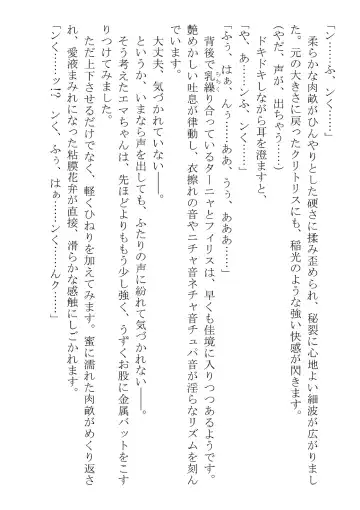 「ン……ふ、ンく……」
　柔らかな肉畝がひんやりとした硬さに揉み歪められ、秘裂に心地よい細波が広がりまし
た。元の大きさに戻ったクリトリスにも、稲光のような強い快感が閃きます。
（やだ、声が、出ちゃう……）
　ドキドキしながら耳を澄ますと、
「や、あ……ンふ、ンく……」
「ふぅ、はぁ、んぅ……ああ、うぅ、あああ……」
　背後で乳繰り合っているターニャとフィリスは、早くも佳境に入りつつあるようです。
艶めかしい吐息が律動し、衣擦れの音やニチャ音ネチャ音チュパ音が淫らなリズムを刻ん
でいます。
　大丈夫、気づかれていない――。
　というか、いまなら声を出しても、ふたりの声に紛れて気づかれない――。
　そう考えたエマちゃんは、先ほどよりももう少し強く、うずくお股に金属バットをこす
りつけてみました。
　ただ上下させるだけでなく、軽くひねりを加えてみます。蜜に濡れた肉畝がめくり返さ
れ、愛液まみれになった粘膜花弁が直接、滑らかな感触にしごかれます。
「ンく……ッ!?　ンく、ふぅ、はぁ……ンく……んク……」